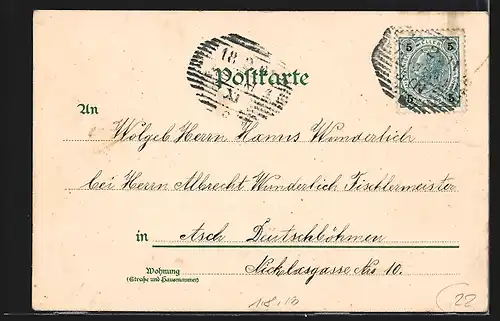 5 5
18
XI
Postkarte
5 5
An
Wolgeb Herrn Hanns Wunderlich
bei Herrn Albrecht Wunderlich Tischlermeister
in Asch Deutschböhmen
Wohnung
(Straße und Hausnummer)
Nicklasgasse No 10.
22